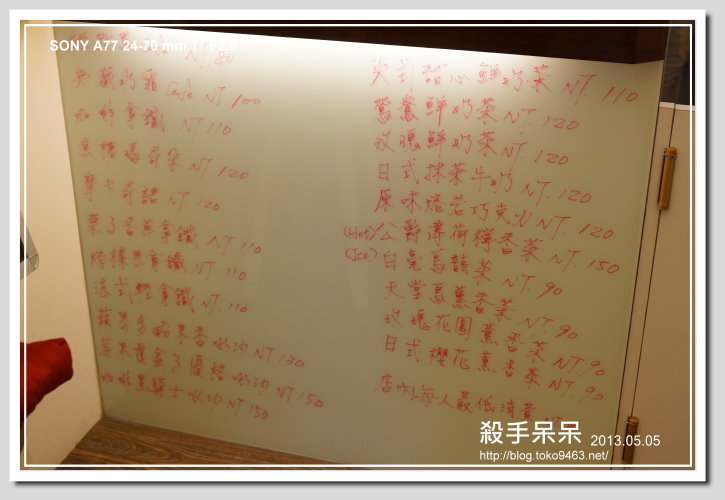 SONY A77 24-70 mm 1" F2.8
NT. 80
典藏奶霜 Cafe NT. 100
咖啡拿鐵 NT. 110
焦糖瑪奇朵 NT. 120
摩卡奇諾 NT. 120
栗子香草拿鐵 NT. 110
榛果拿鐵 NT. 110
法式鹽拿鐵 NT. 110
蘋果多酚果香冰沙 NT 130
芒果覆盆子優格冰沙 NT 150
咖啡黑騎士冰沙 NT. 150
英式甜心鮮奶茶 NT. 110
鴛鴦鮮奶茶 NT. 120
玫瑰鮮奶茶 NT. 120
日式抹茶牛奶 NT. 120
原味熔岩巧克力 NT. 120
(Hot) 公爵薄荷檸香茶 NT. 150
(Ice) 白毫烏龍茶 NT. 90
天堂鳥薰香茶 NT. 90
玫瑰花園薰香茶 NT. 90
日式櫻花薰香茶 NT. 90
店內每人最低消費
殺手呆呆 2013.05.05
http://blog.toko9463.net/